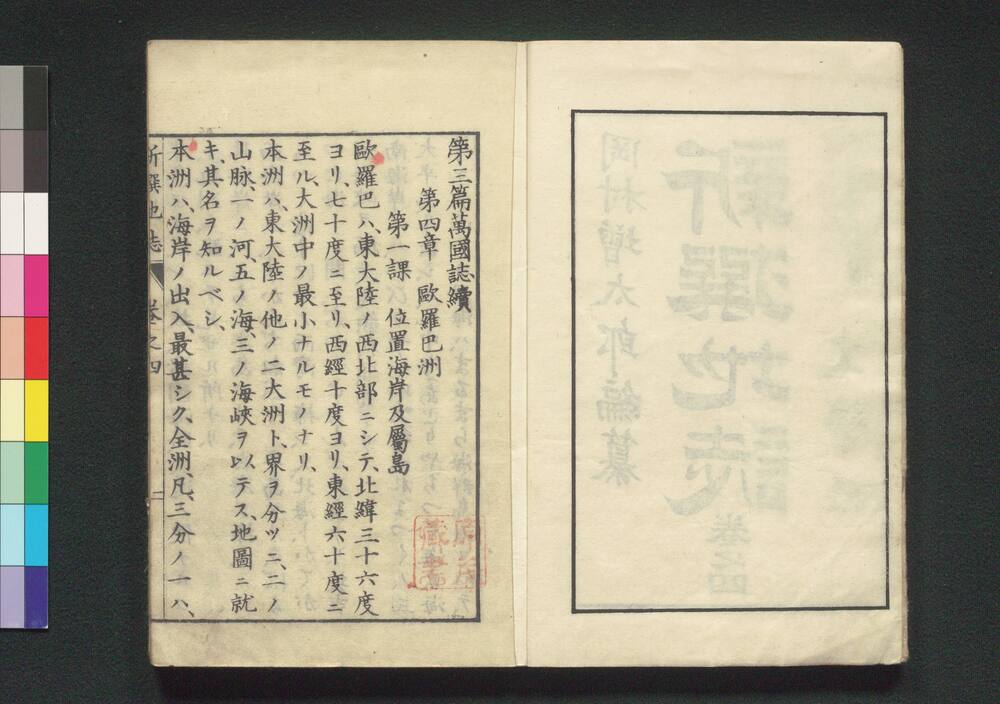 第三篇萬國誌續
第四章　歐羅巴洲
第一課　位置海岸及屬島
歐羅巴ハ、東大陸ノ西北部ニシテ、北緯三十六度
ヨリ、七十度ニ至リ、西經十度ヨリ、東經六十度ニ
至ル、大洲中ノ最小ナルモノナリ、
本洲ハ、東大陸ノ他ノ二大洲ト、界ヲ分ツニ、二ノ
山脉、一ノ河、五ノ海、三ノ海峽ヲ以テス、地圖ニ就
キ、其名ヲ知ルベシ、
本洲ハ、海岸ノ出入、最甚シク、全洲、凡、三分ノ一ハ、
新撰地誌　卷之四　一
岡村增太郎編纂
新撰地志
卷四